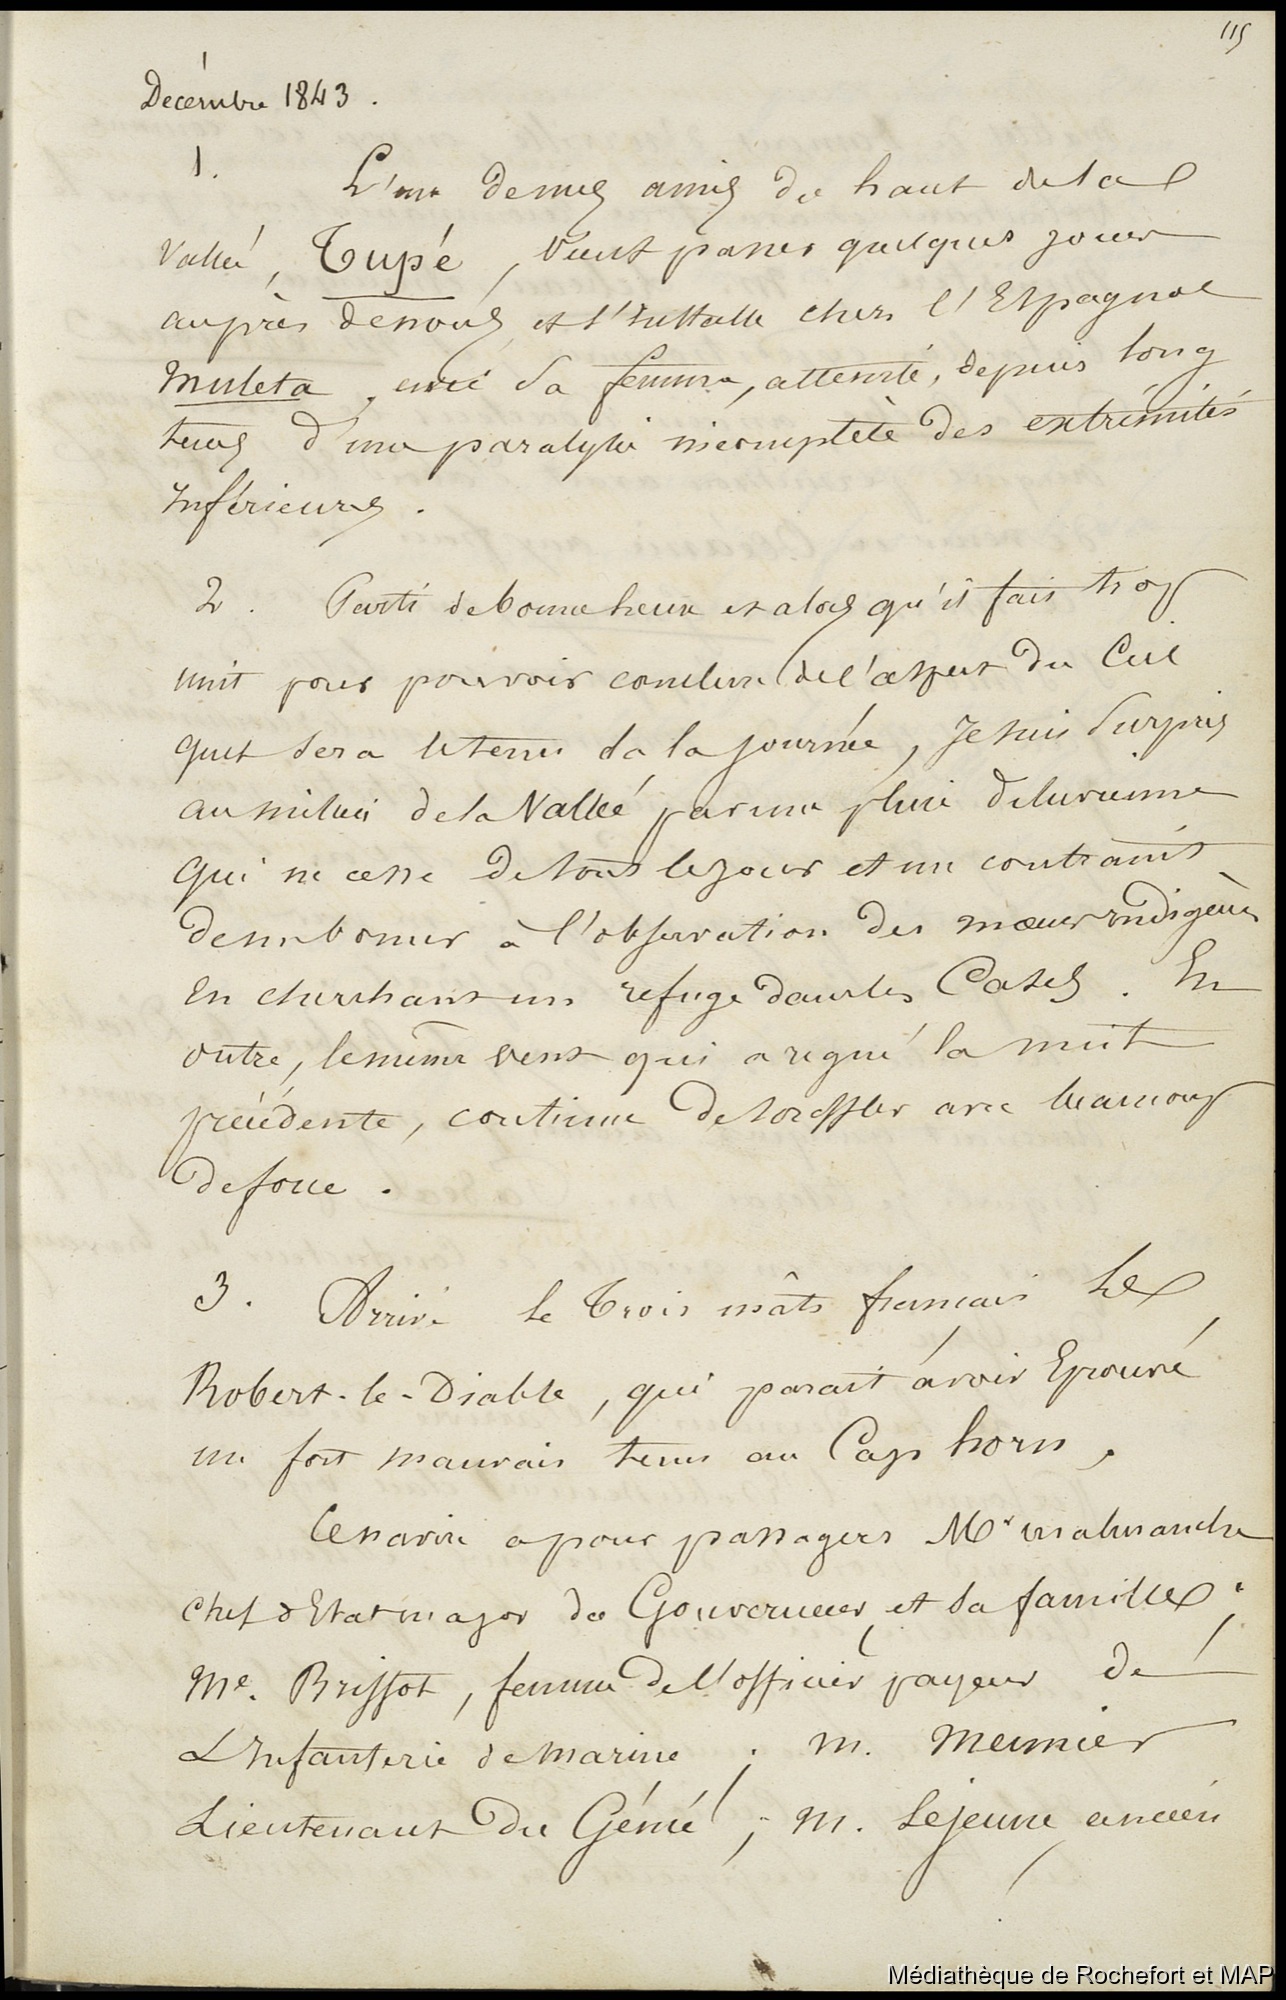 115
Décembre 1843.
1. L'un de mes amis du haut de la
vallée, Tupé, vient passer quelques jours
auprès de nous et s'installe chez l'Espagnol
Muleta, avec sa femme, atteinte, depuis long
tems d'une paralysie incomplète des extrémités
inférieures.
2. Parti de bonne heure et alors qu'il fait trop
nuit pour pouvoir conclure de l'aspect du Ciel
quel sera le tems de la journée, je suis surpris
au milieu de la Vallée par une pluie diluvienne
qui ne cesse de tout le jour et me contraint
de me borner à l'observation des mœurs indigènes
en cherchant un refuge dans les Cases. En
outre, le même vent qui a régné la nuit
précédente, continue de souffler avec beaucoup
de force.
3. Arrivé le Trois mâts français le
Robert-le-Diable, qui parait avoir éprouvé
un fort mauvais tems au Cap horn.
Ce navire a pour passagers Mr malmanche
chef d'Etat major du Gouverneur et sa famille;
Me. Brissot, femme de l'officier payeur de
L'Infanterie de marine; m. meunier
Lieutenant du Génie; m. Lejeune ancien
Médiathèque de Rochefort et MAP